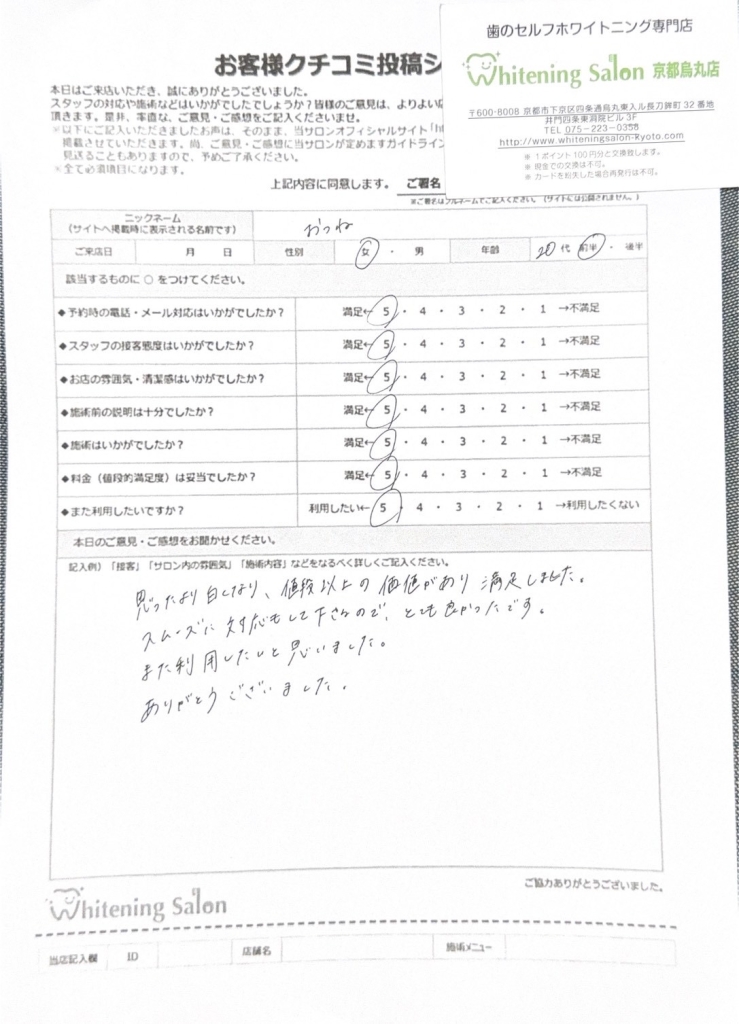 お客様クチコミ投稿シ
歯のセルフホワイトニング専門店
Whitening Salon 京都烏丸店
〒600-8008 京都市下京区四条通烏丸東入ル長刀鉾町 32 番地
井門四条東洞院ビル 3F
TEL 075-223-0358
http://www.whiteningsalon-kyoto.com
※ 1ポイント100円分と交換致します。
※ 現金での交換は不可。
※ カードを紛失した場合再発行は不可。
本日はご来店いただき、誠にありがとうございました。
スタッフの対応や施術などはいかがでしたでしょうか？皆様のご意見は、よりよい
頂きます。是非、率直な、ご意見・ご感想をご記入くださいませ。
※以下にご記入いただきましたお声は、そのまま、当サロンオフィシャルサイト「ht
掲載させていただきます。尚、ご意見・ご感想に当サロンが定めますガイドライン
見送ることもありますので、予めご了承ください。
※全て必須項目になります。
上記内容に同意します。 ご署名
※ご署名はフルネームでご記入ください。（サイトには公開されません。）
ニックネーム
（サイトへ掲載時に表示される名前です） おつね
ご来店日 月 日 性別 女 ・ 男 年齢 20代 前半 ・ 後半
該当するものに ○ をつけてください。
◆予約時の電話・メール対応はいかがでしたか？ 満足← 5 ・ 4 ・ 3 ・ 2 ・ 1 →不満足
◆スタッフの接客態度はいかがでしたか？ 満足← 5 ・ 4 ・ 3 ・ 2 ・ 1 →不満足
◆お店の雰囲気・清潔感はいかがでしたか？ 満足← 5 ・ 4 ・ 3 ・ 2 ・ 1 →不満足
◆施術前の説明は十分でしたか？ 満足← 5 ・ 4 ・ 3 ・ 2 ・ 1 →不満足
◆施術はいかがでしたか？ 満足← 5 ・ 4 ・ 3 ・ 2 ・ 1 →不満足
◆料金（値段的満足度）は妥当でしたか？ 満足← 5 ・ 4 ・ 3 ・ 2 ・ 1 →不満足
◆また利用したいですか？ 利用したい← 5 ・ 4 ・ 3 ・ 2 ・ 1 →利用したくない
本日のご意見・ご感想をお聞かせください。
記入例）「接客」「サロン内の雰囲気」「施術内容」などをなるべく詳しくご記入ください。
思ったより白くなり、値段以上の価値があり満足しました。
スムーズに対応もして下さるので、とても良かったです。
また利用したいと思いました。
ありがとうございました。
ご協力ありがとうございました。
Whitening Salon
当店記入欄 ID 店舗名 施術メニュー